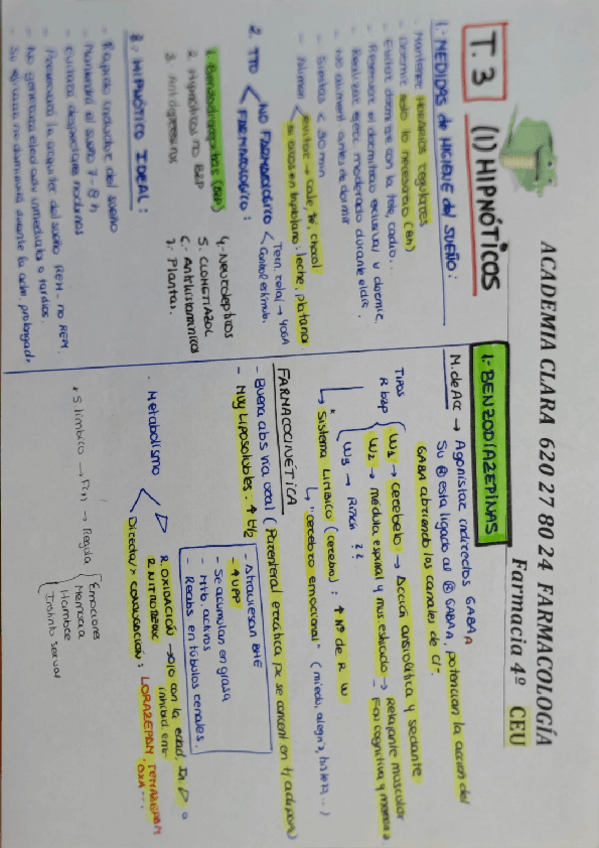 ACADEMIA CLARA 620 27 80 24 FARMACOLOGÍA
Farmacia 4º CEU
T.3 (1) HIPNÓTICOS
1.- MEDIDAS de HIGIENE del SUEÑO:
· Mantener HORARIOS regulares
· Dormir solo lo necesario (8h)
· Evitar dormirse con la tele, radio...
· Reservar el dormitorio exclusiv. dormir.
· Realizar ejerc. moderado durante el día.
· NO aliment. antes de dormir
· Siestas < 30 min
· Aliment
evitar → café, té, chocol
si ricos en triptófano: leche, plátano
2. TTO
NO FARMACOLÓGICO
Tecn. relaj → YOGA
Control estímulo.
FARMACOLÓGICO:
1. Benzodiacepinas (BZP)
2. Hipnóticos no BZP
3. Antidepresivos
4. Neurolépticos
5. CLOMETIAZOL
6. Antihistamínicos
7. Plantas.
HIPNÓTICO IDEAL:
· Rápido inductor del sueño
· Mantendrá el sueño 7-8h
· Evitará despertares nocturnos
· Preservará la arquitec. del sueño REM - no REM.
· NO generará efect. adv. inmediato o tardíos.
· Su eficacia no disminuirá durante la adm. prolongad.
1.- BENZODIAZEPINAS
M. de Acc → Agonistas indirectos GABA A
Su ® esta ligado al ® GABA A, potencian la acción del
GABA abriendo los canales de Cl-.
TIPOS
R bzp
W1 → cerebelo → Acción ansiolítica y sedante
W2 → médula espinal y mus. estriado → Relajante muscular
- Fon cognitiva y memoria
W3 → Riñón ??
* Sistema LIMBICO (cerebro): ↑ Nº de R W
↳ "cerebro emocional" (miedo, alegría, tristeza, ...)
FARMACOCINÉTICA
- Buena abs vía oral (Parenteral errática pq se concent en tj adiposo)
- MUY LIPOSOLUBLES. ↑ t1/2
- Atraviesan BHE
- ↑ UPP
- Se acumulan en grasa
- Mtb. activos
- Reabs en túbulos renales.
· Metabolismo
R. OXIDACIÓN
R. NITROREDUC
→ ojo con la edad,
inhibid enz.
Directa/e CONJUGACIÓN: LORAZEPAM, TEMAZEPAM,
OXA...
* S. límbico → Fcn → Regula
Emociones
Memoria
Hambre
Instinto sexual